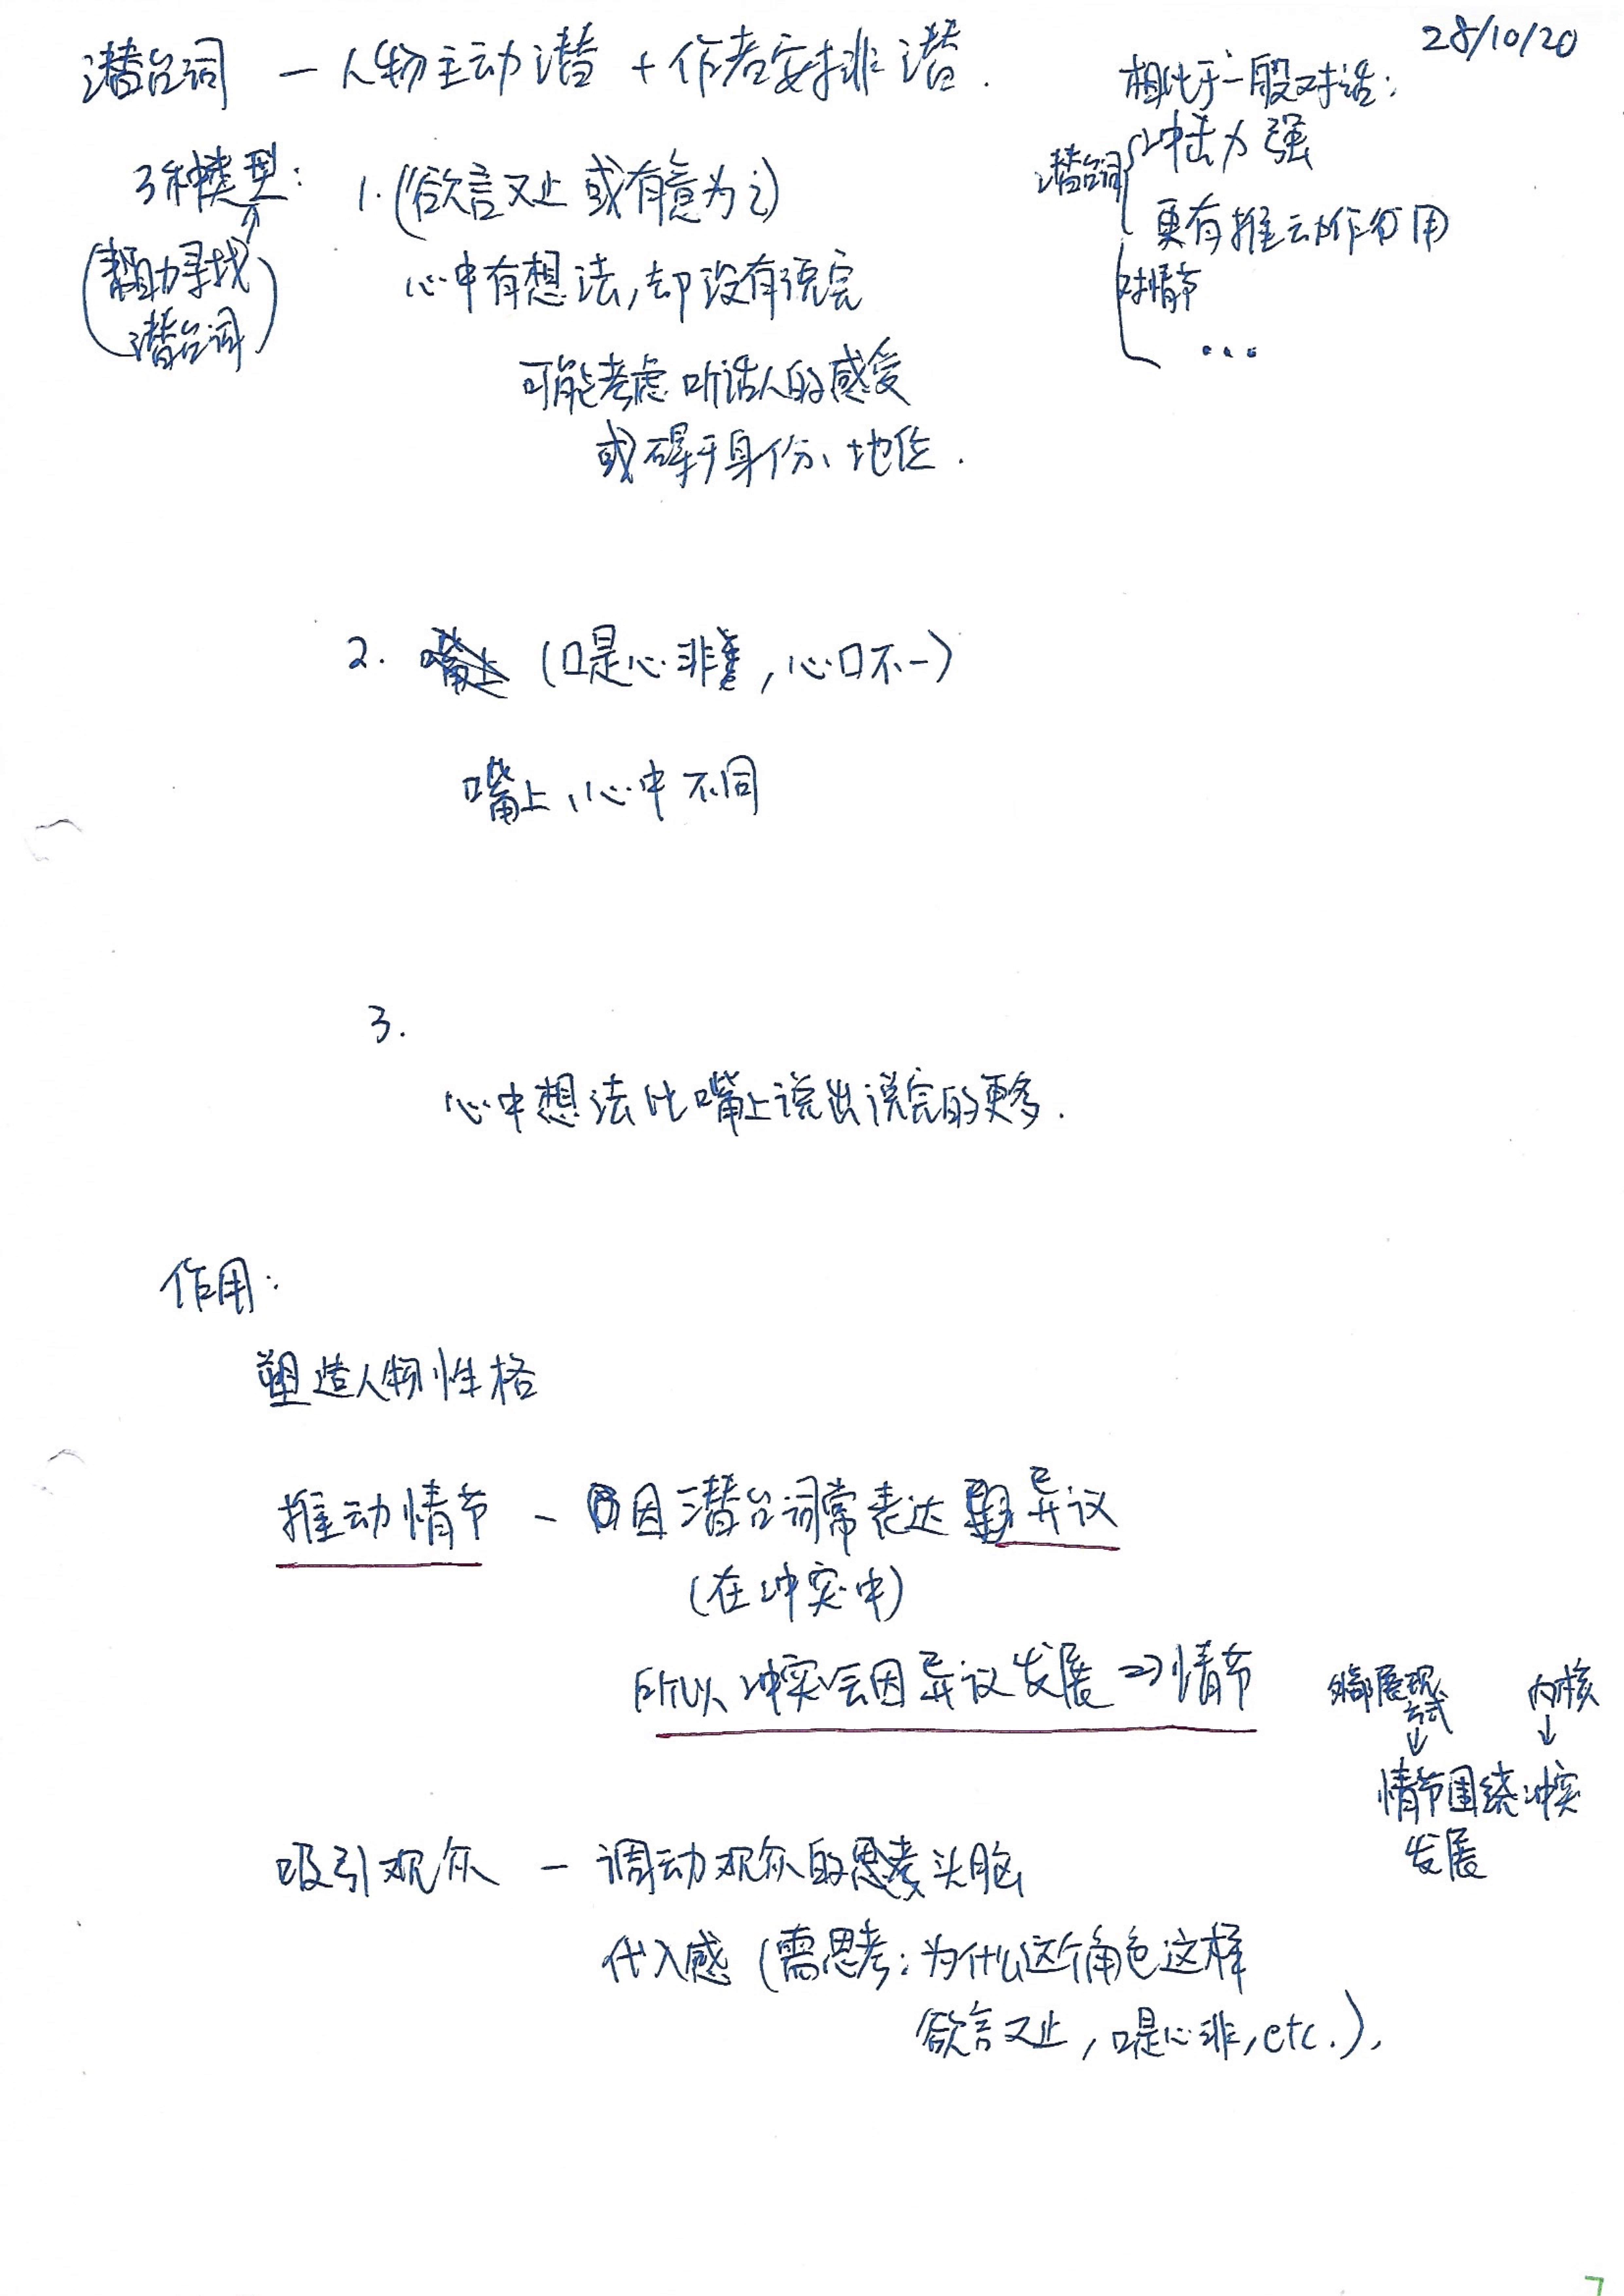 28/10/20
潜台词 — 人物主动潜 + 作者安排潜.
相比于一般对话:
潜台词
冲击力强
更有推动作用
对情节
...
3种类型:
(帮助寻找
潜台词)
1. (欲言又止 或有意为之)
心中有想法,却没有说完
可能考虑听话人的感受
或碍于身份、地位.
2. 嘴上 (口是心非, 心口不一)
嘴上,心中不同
3.
心中想法比嘴上说出说完的更多.
作用:
塑造人物性格
推动情节 - 因潜台词常表达 异议
(在冲突中)
所以冲突会因异议发展 => 情节
外部展现
方式
↓
内核
↓
情节围绕冲突
发展
吸引观众 — 调动观众的思考头脑
代入感 (需思考:为什么这个角色这样
欲言又止, 口是心非, etc.).
7